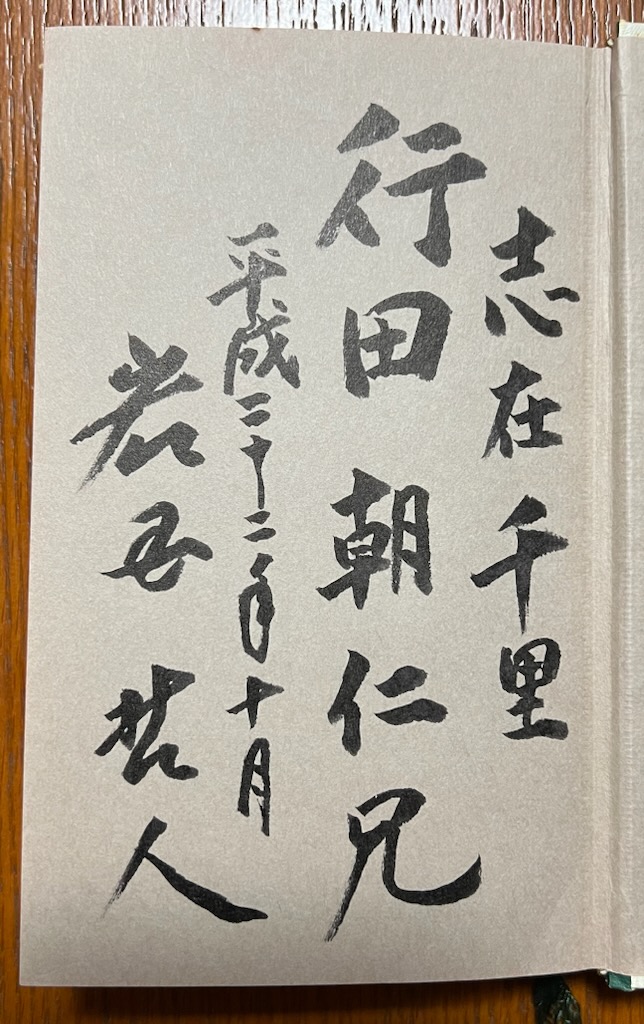 志在千里
行田朝仁兄
平成二十二年十月
岩国哲人